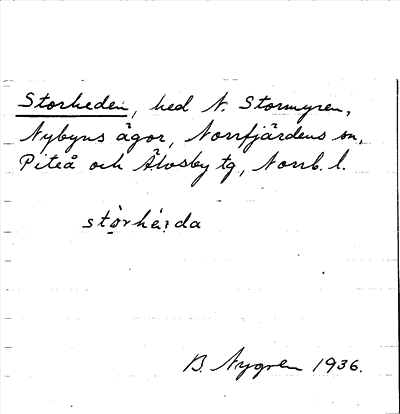 Storheden, hed N. Stormyren,
Nybyns ägor, Norrfjärdens sn,
Piteå och Älvsby tg, Norrb. l.
stò̤rhé̤i̯da
B. Nygren 1936.